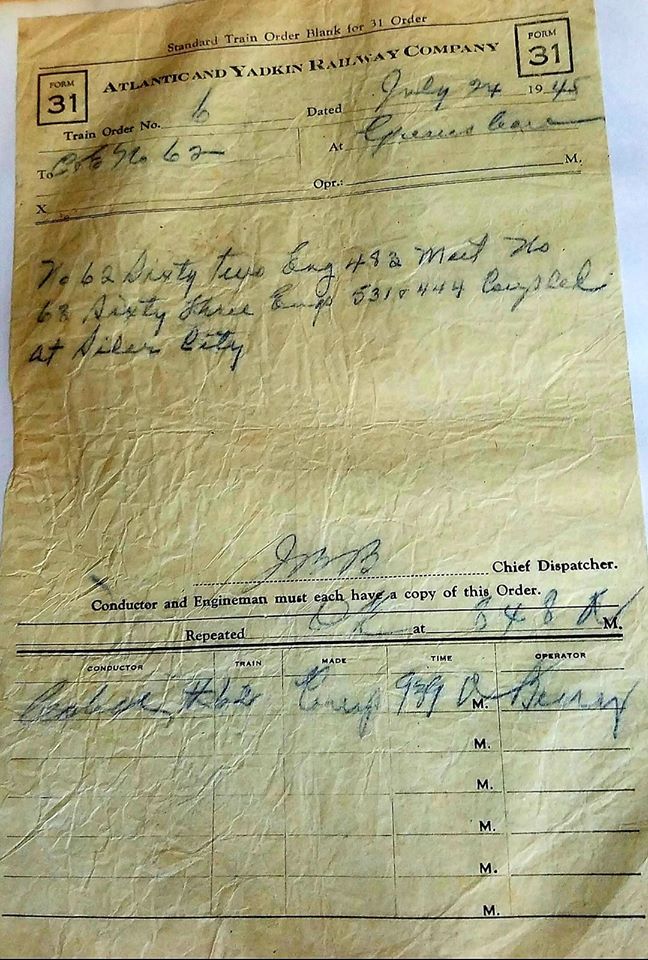 Standard Train Order Blank for 31 Order
FORM 31
ATLANTIC AND YADKIN RAILWAY COMPANY
FORM 31
Train Order No. 6 Dated July 24 1945
To C&E No 62 At Greensboro
X Opr.: M.
No 62 Sixty two Eng 482 Meet No
63 Sixty three Engs 531 & 444 Coupled
at Siler City
JBB Chief Dispatcher.
Conductor and Engineman must each have a copy of this Order.
Repeated OK at 848 A M.
CONDUCTOR TRAIN MADE TIME OPERATOR
#62 Comp 939 A M.
M.
M.
M.
M.
M.